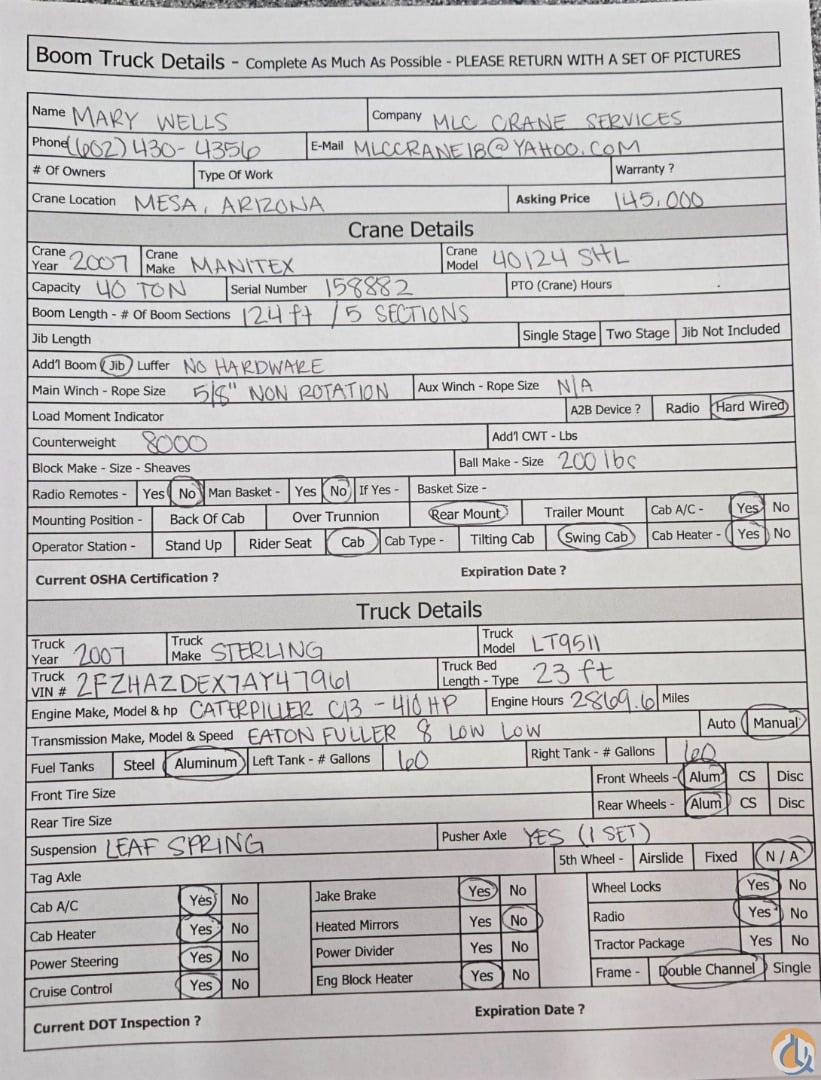 Boom Truck Details - Complete As Much As Possible - PLEASE RETURN WITH A SET OF PICTURES
Name MARY WELLS Company MLC CRANE SERVICES
Phone (602) 430-4356 E-Mail MLCCRANE18@YAHOO.COM
# Of Owners Type Of Work Warranty ?
Crane Location MESA, ARIZONA Asking Price 145,000
Crane Details
Crane Year 2007 Crane Make MANITEX Crane Model 40124 SHL
Capacity 40 TON Serial Number 158882 PTO (Crane) Hours
Boom Length - # Of Boom Sections 124 ft / 5 SECTIONS
Jib Length Single Stage Two Stage Jib Not Included
Add'l Boom Jib Luffer NO HARDWARE
Main Winch - Rope Size 5/8" NON ROTATION Aux Winch - Rope Size N/A
Load Moment Indicator A2B Device ? Radio Hard Wired
Counterweight 8000 Add'l CWT - Lbs
Block Make - Size - Sheaves Ball Make - Size 200 lbs
Radio Remotes - Yes No Man Basket - Yes No If Yes - Basket Size -
Mounting Position - Back Of Cab Over Trunnion Rear Mount Trailer Mount Cab A/C - Yes No
Operator Station - Stand Up Rider Seat Cab Cab Type - Tilting Cab Swing Cab Cab Heater - Yes No
Current OSHA Certification ? Expiration Date ?
Truck Details
Truck Year 2007 Truck Make STERLING Truck Model LT9511
Truck VIN # 2FZHAZDEX7AY47961 Truck Bed Length - Type 23 ft
Engine Make, Model & hp CATERPILLER C13 - 410 HP Engine Hours 2869.6 Miles
Transmission Make, Model & Speed EATON FULLER 8 LOW LOW Auto Manual
Fuel Tanks Steel Aluminum Left Tank - # Gallons 60 Right Tank - # Gallons 60
Front Tire Size Front Wheels - Alum CS Disc
Rear Tire Size Rear Wheels - Alum CS Disc
Suspension LEAF SPRING Pusher Axle YES (1 SET)
Tag Axle 5th Wheel - Airslide Fixed N / A
Cab A/C Yes No Jake Brake Yes No Wheel Locks Yes No
Cab Heater Yes No Heated Mirrors Yes No Radio Yes No
Power Steering Yes No Power Divider Yes No Tractor Package Yes No
Cruise Control Yes No Eng Block Heater Yes No Frame - Double Channel Single
Current DOT Inspection ? Expiration Date ?